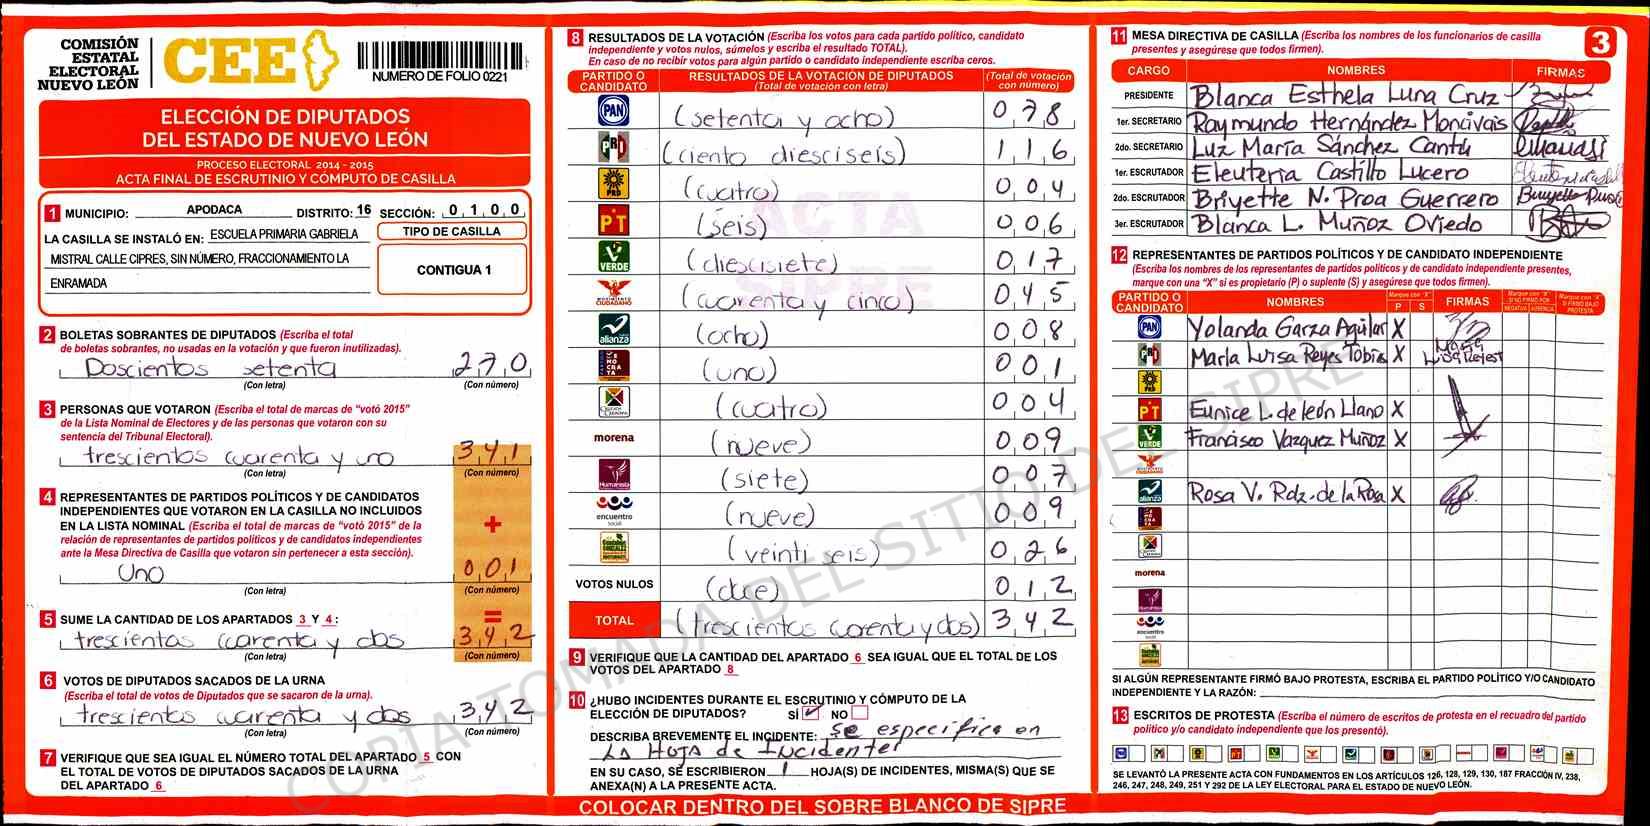 COMISIÓN
ESTATAL
ELECTORAL
NUEVO LEÓN
CEE
NUMERO DE FOLIO 0221
ELECCIÓN DE DIPUTADOS
DEL ESTADO DE NUEVO LEÓN
PROCESO ELECTORAL 2014 - 2015
ACTA FINAL DE ESCRUTINIO Y CÓMPUTO DE CASILLA
1 MUNICIPIO: APODACA DISTRITO: 16 SECCIÓN: 0 1 0 0
LA CASILLA SE INSTALÓ EN: ESCUELA PRIMARIA GABRIELA
MISTRAL CALLE CIPRES, SIN NÚMERO, FRACCIONAMIENTO LA
ENRAMADA
TIPO DE CASILLA
CONTIGUA 1
2 BOLETAS SOBRANTES DE DIPUTADOS (Escriba el total
de boletas sobrantes, no usadas en la votación y que fueron inutilizadas).
Doscientos setenta 2 7 0
(Con letra) (Con número)
3 PERSONAS QUE VOTARON (Escriba el total de marcas de "votó 2015"
de la Lista Nominal de Electores y de las personas que votaron con su
sentencia del Tribunal Electoral).
trescientos cuarenta y uno 3 4 1
(Con letra) (Con número)
4 REPRESENTANTES DE PARTIDOS POLÍTICOS Y DE CANDIDATOS
INDEPENDIENTES QUE VOTARON EN LA CASILLA NO INCLUIDOS
EN LA LISTA NOMINAL (Escriba el total de marcas de "votó 2015" de la
relación de representantes de partidos políticos y de candidatos independientes
ante la Mesa Directiva de Casilla que votaron sin pertenecer a esta sección).
+
Uno 0 0 1
(Con letra) (Con número)
5 SUME LA CANTIDAD DE LOS APARTADOS 3 Y 4: =
trescientos cuarenta y dos 3 4 2
(Con letra) (Con número)
6 VOTOS DE DIPUTADOS SACADOS DE LA URNA
(Escriba el total de votos de Diputados que se sacaron de la urna).
trescientos cuarenta y dos 3 4 2
(Con letra) (Con número)
7 VERIFIQUE QUE SEA IGUAL EL NÚMERO TOTAL DEL APARTADO 5 CON
EL TOTAL DE VOTOS DE DIPUTADOS SACADOS DE LA URNA
DEL APARTADO 6
8 RESULTADOS DE LA VOTACIÓN (Escriba los votos para cada partido político, candidato
independiente y votos nulos, súmelos y escriba el resultado TOTAL).
En caso de no recibir votos para algún partido o candidato independiente escriba ceros.
PARTIDO O CANDIDATO RESULTADOS DE LA VOTACIÓN DE DIPUTADOS (Total de votación con letra) (Total de votación con número)
PAN (setenta y ocho) 0 7 8
PRD (ciento diesciseis) 1 1 6
PRD (cuatro) 0 0 4
PT (seis) 0 0 6
VERDE (diescisiete) 0 1 7
MOVIMIENTO CIUDADANO (cuarenta y cinco) 0 4 5
alianza (ocho) 0 0 8
(uno) 0 0 1
(cuatro) 0 0 4
morena (nueve) 0 0 9
Humanista (siete) 0 0 7
encuentro social (nueve) 0 0 9
(veintiseis) 0 2 6
VOTOS NULOS (doce) 0 1 2
TOTAL (trescientos cuarenta y dos) 3 4 2
9 VERIFIQUE QUE LA CANTIDAD DEL APARTADO 6 SEA IGUAL QUE EL TOTAL DE LOS
VOTOS DEL APARTADO 8
10 ¿HUBO INCIDENTES DURANTE EL ESCRUTINIO Y CÓMPUTO DE LA
ELECCIÓN DE DIPUTADOS? SÍ NO
DESCRIBA BREVEMENTE EL INCIDENTE: Se especifica en
La Hoja de Incidente
EN SU CASO, SE ESCRIBIERON 1 HOJA(S) DE INCIDENTES, MISMA(S) QUE SE
ANEXA(N) A LA PRESENTE ACTA.
COLOCAR DENTRO DEL SOBRE BLANCO DE SIPRE
ACTA
SIPRE
COPIA TOMADA DEL SITIO DEL SIPRE
11 MESA DIRECTIVA DE CASILLA (Escriba los nombres de los funcionarios de casilla
presentes y asegúrese que todos firmen).
3
CARGO NOMBRES FIRMAS
PRESIDENTE Blanca Esthela Luna Cruz
1er. SECRETARIO Raymundo Hernández Moncivais
2do. SECRETARIO Luz María Sánchez Cantú
1er. ESCRUTADOR Eleuteria Castillo Lucero
2do. ESCRUTADOR Briyette N. Proa Guerrero
3er. ESCRUTADOR Blanca L. Muñoz Oviedo
12 REPRESENTANTES DE PARTIDOS POLÍTICOS Y DE CANDIDATO INDEPENDIENTE
(Escriba los nombres de los representantes de partidos políticos y de candidato independiente presentes,
marque con una "X" si es propietario (P) o suplente (S) y asegúrese que todos firmen).
PARTIDO O CANDIDATO NOMBRES Marque con "X" P S FIRMAS Marque con "X" SI NO FIRMÓ POR NEGATIVA AUSENCIA Marque con "X" SI FIRMÓ BAJO PROTESTA
PAN Yolanda Garza Aguilar X
Marla Luisa Reyes Tobias X
PRD
PT Eunice L. de león Llano X
VERDE Francisco Vazquez Muñoz X
alianza Rosa V. Rdz. de la Rosa X
morena
Humanista
encuentro social
SI ALGÚN REPRESENTANTE FIRMÓ BAJO PROTESTA, ESCRIBA EL PARTIDO POLÍTICO Y/O CANDIDATO
INDEPENDIENTE Y LA RAZÓN:
13 ESCRITOS DE PROTESTA (Escriba el número de escritos de protesta en el recuadro del partido
político y/o candidato independiente que los presentó).
SE LEVANTÓ LA PRESENTE ACTA CON FUNDAMENTOS EN LOS ARTÍCULOS 126, 128, 129, 130, 187 FRACCIÓN IV, 238,
246, 247, 248, 249, 251 Y 292 DE LA LEY ELECTORAL PARA EL ESTADO DE NUEVO LEÓN.